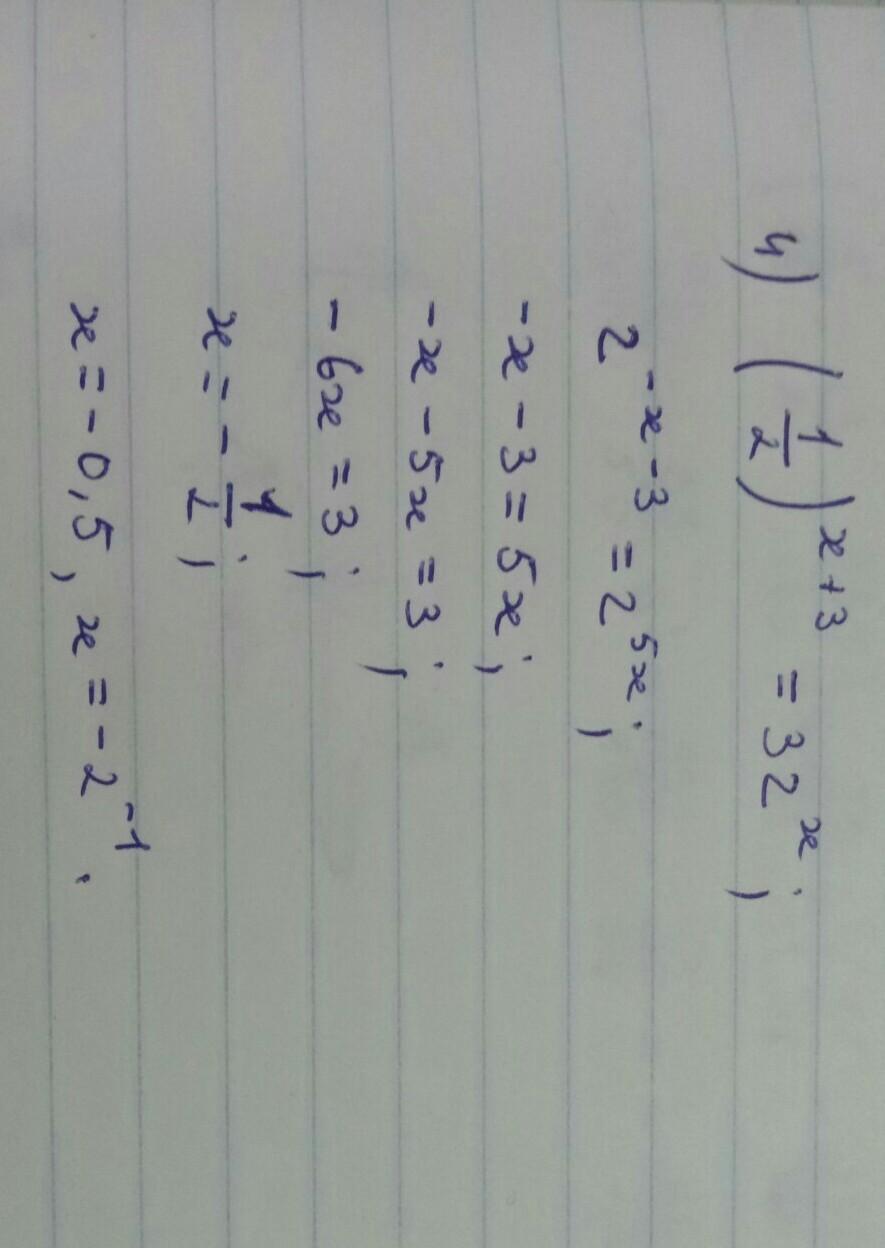 4) (1/2)^(x+3) = 32^x;
2^(-x-3) = 2^(5x);
-x-3=5x;
-x-5x=3;
-6x=3;
x=-1/2;
x=-0,5, x=-2^(-1).